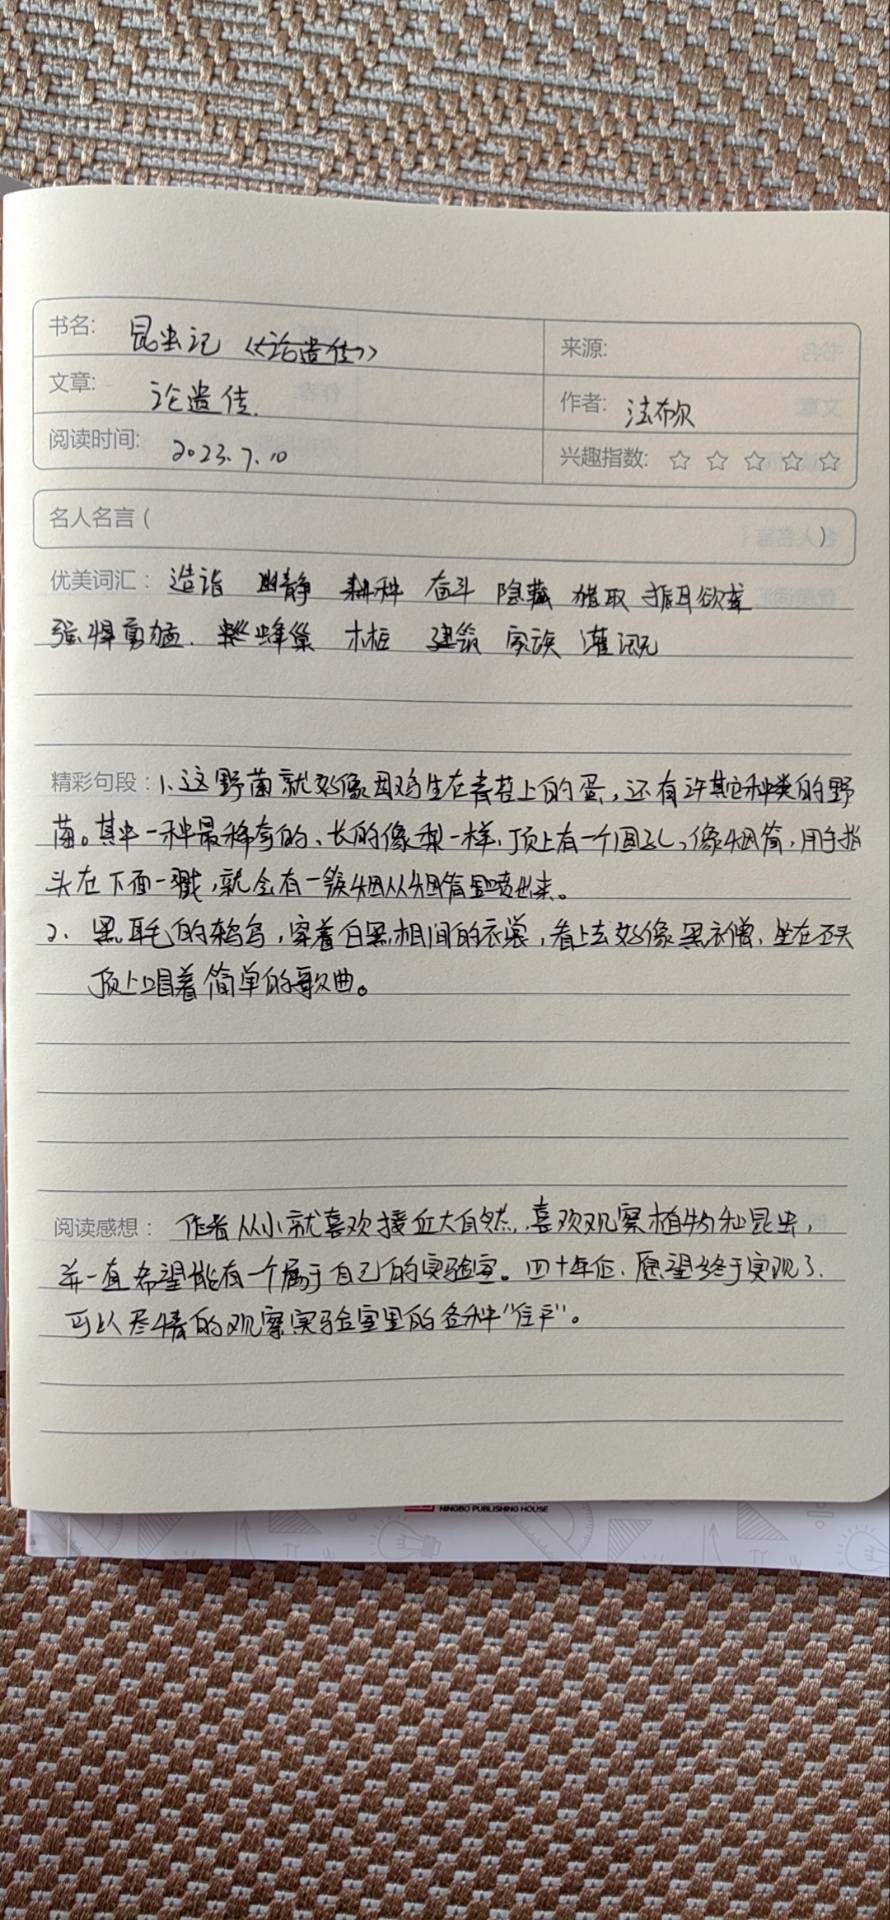 书名: 昆虫记《论遗传》
来源:
文章: 论遗传.
作者: 法布尔
阅读时间: 2023.7.10
兴趣指数: ☆ ☆ ☆ ☆ ☆
名人名言 ( )
优美词汇: 造诣 幽静 耕种 奋斗 隐藏 猎取 振耳欲聋
强悍勇猛. 蜂巢 木桩 建筑 家族 灌溉
精彩句段: 1.这野菌就好像母鸡生在青苔上的蛋,还有许其它种类的野
菌。其中一种最稀奇的、长的像梨一样,顶上有一个圆孔,像烟筒,用手指
头在下面一戳,就会有一簇烟从烟筒里喷出来。
2. 黑耳毛的鸫鸟,穿着白黑相间的衣裳,看上去好像黑衣僧,坐在石头
顶上唱着简单的歌曲。
阅读感想: 作者从小就喜欢接近大自然,喜欢观察植物和昆虫,
并一直希望能有一个属于自己的实验室。四十年后,愿望终于实现了.
可以尽情的观察实验室里的各种“住户”。
NINGBO PUBLISHING HOUSE